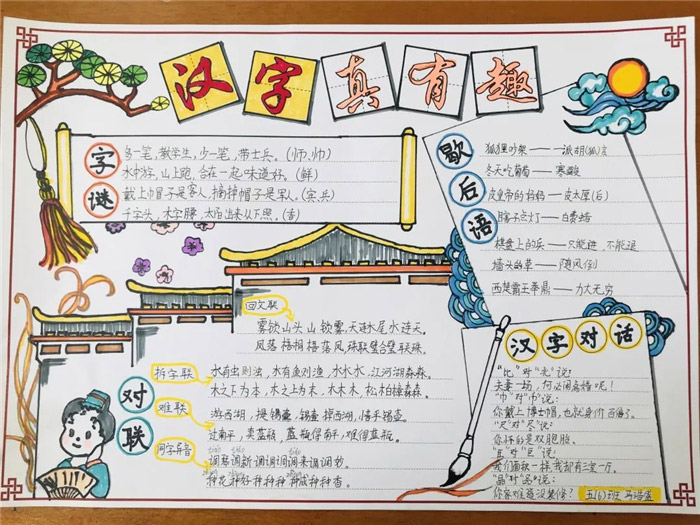 汉字真有趣
字谜
多一笔,教学生,少一笔,带士兵。(师.帅)
水中游,山上跑,合在一起味道好。(鲜)
戴上巾帽子是客人,摘掉帽子是军人。(宾.兵)
千字头,木字腰,太阳出来从下照。(香)
歇后语
狐狸吵架——一派胡(狐)言
冬天吃葡萄——寒酸
皮皇帝的妈妈——皮太厚(后)
瞎子点灯——白费蜡
棋盘上的兵——只能进,不能退
墙头的草——随风倒
西楚霸王举鼎——力大无穷
对联
回文联
雾锁山头山锁雾,天连水尾水连天。
风落梧桐梧落风,珠联璧合璧联珠。
拆字联
水有虫则浊,水有鱼则渔,水水水,江河湖淼淼。
木之下为本,木之上为末,木木木,松柏樟森森。
难联
游西湖,提锡壶,锡壶掉西湖,惜乎锡壶。
过南平,卖蓝瓶,蓝瓶得南平,难得蓝瓶。
同字异音
调琴调新调调调调来调调妙
种花种好种种种种成种种香。
汉字对话
"比"对"北"说:
夫妻一场,何必闹离婚呢!
"巾"对"币"说:
你戴上博士帽,也就身价百倍了。
"尺"对"尽"说:
你怀的是双胞胎。
"臣"对"巨"说:
我们面积一样,我却有三室一厅。
"晶"对"品"说:
你家难道没装修?
五(6)班